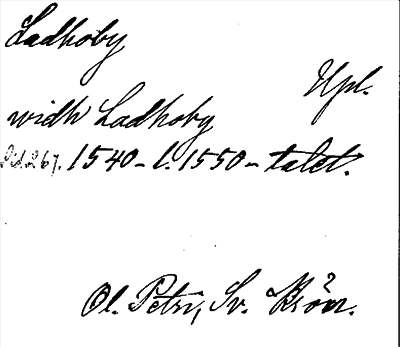 Ladhoby
Upl.
widh Ladhoby
1540- l. 1550-talet.
Ol. Petri, Sv. Krön.